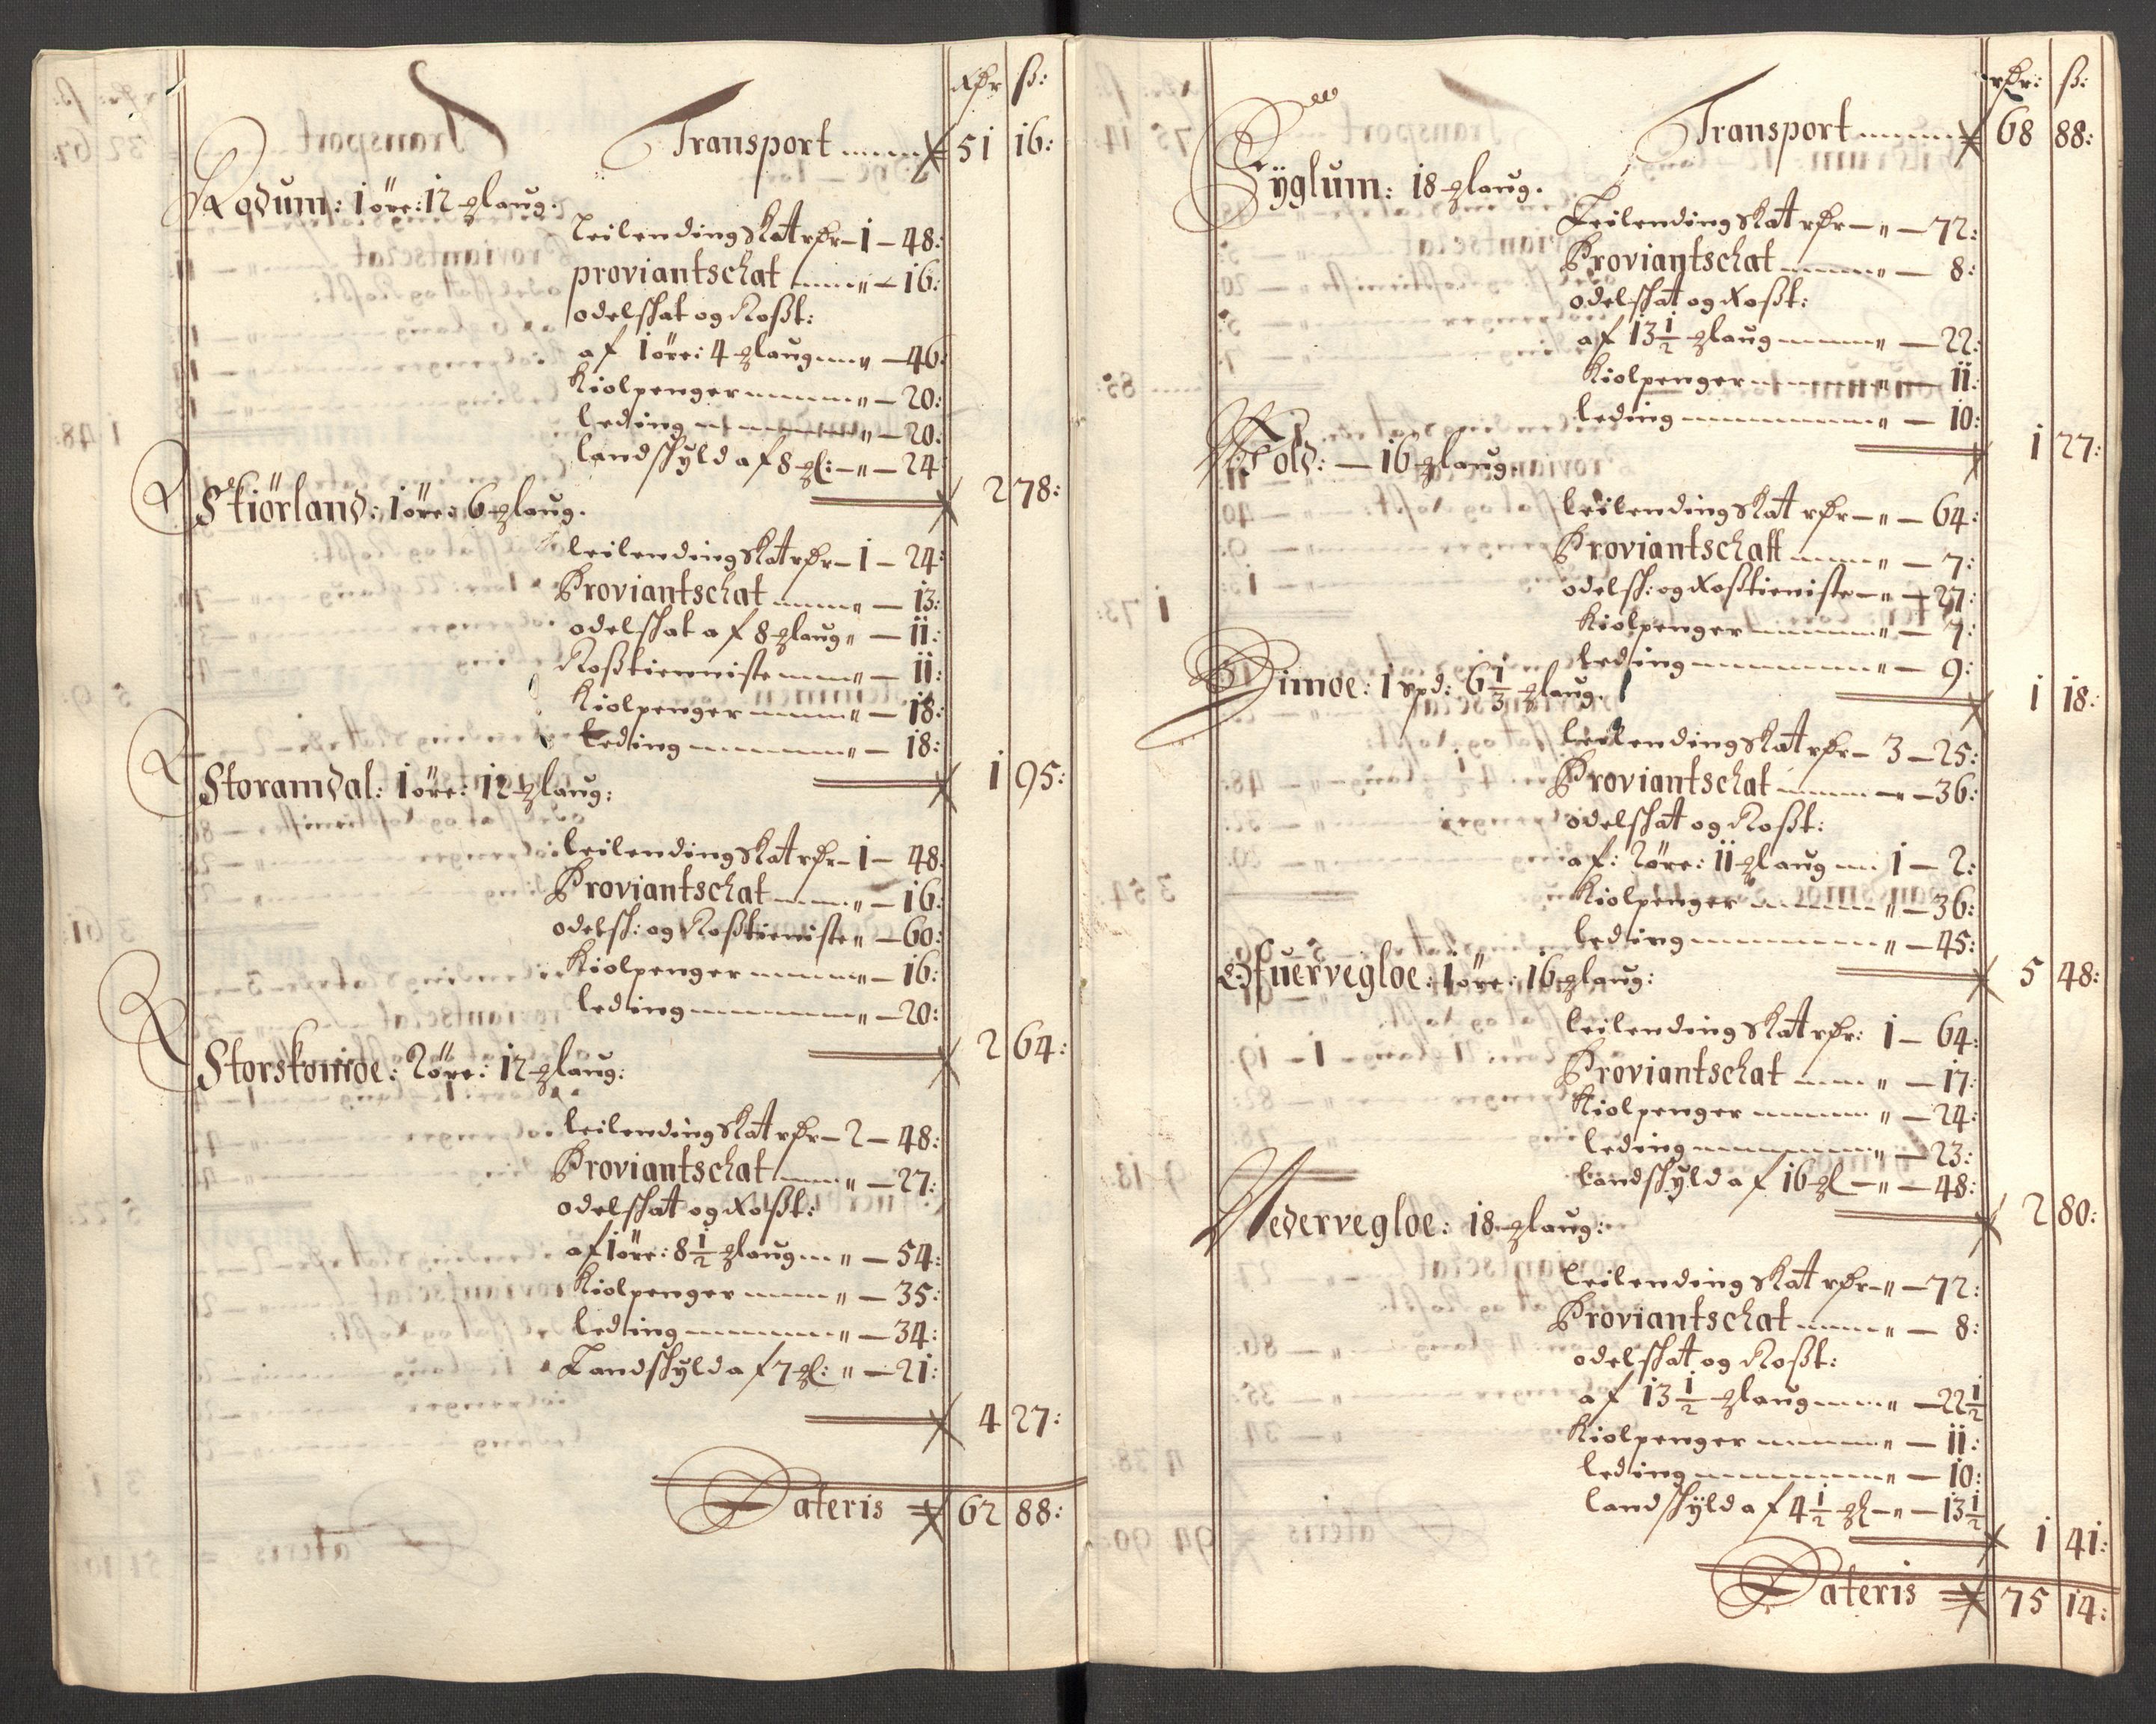 Rdr ß:
Transport 51 16:
Rodum: 1 öre: 12 laug.
Leilending Skat rdr – 1 – 48:
proviantschat " – 16:
odelskat og Rosst:
af 1 öre: 4 laug " – 46:
Kiolpenger " – 20:
leding " – 20:
landskyld af 8 – " – 24
2 78:
Skiörland: 1 öre: 6 laug.
leilending Skat rdr – 1 – 24:
Proviantschat " – 13:
odelskat af 8 laug " – 11:
Rosstienniste " – 11:
Kiolpenger " – 18:
Leding " – 18:
1 95:
Storamdal: 1 öre: 12 laug:
leilending Skat rdr – 1 – 48:
Proviantschat " – 16:
odelsk: og Rosstieniste " – 60:
Kiolpenger " – 16:
leding " – 20:
2 64:
2 öre: 12 laug:
leilending Skat rdr – 2 – 48:
Proviantschat " – 27:
odelskat og Rosst:
af 1 öre: 8 1/2 laug " – 54:
Kiolpenger " – 35:
leding " – 34:
Landskyld af 7 : " – 21:
4 27:
Lateris 62 88:
rdr: ß:
Transport 68 88:
18 laug.
Leilending Skat rdr – " – 72:
Proviantschat " – 8:
odelskat og Rosst:
af 13 1/2 laug " – 22:
Kiolpenger " – 11:
leding " – 10:
1 27:
Wold: – 16 laug.
leilending Skat rdr – " – 64:
Proviantschatt " – 7:
odelsk: og Rosstieniste – " – 27:
Kiolpenger " – 7:
leding " – 9:
1 18:
Dimoe: 1 spd: 6 1/3 laug.
leilending Skat rdr – 3 – 25:
Proviantschat – 36:
odelskat og Rosst:
af: 2 öre: 11 laug 1 – 2:
Kiolpenger " – 36:
leding " – 45:
5 48:
Ofuervegloe: 1 öre: 16 laug:
leilending Skat rdr: 1 – 64:
Proviantschat " – 17:
Kiolpenger " – 24:
leding " – 23:
Landskyld af 16 – " – 48:
2 80:
Nedervegloe: 18 laug:
Leilending Skat rdr – " – 72:
Proviantschat " – 8:
odelskat og Rosst:
af 13 1/2 laug " – 22 1/2
Kiolpenger " – 11:
leding " – 10:
landskyld af 4 1/2 – " – 13 1/2
1 41:
Lateris 75 14: